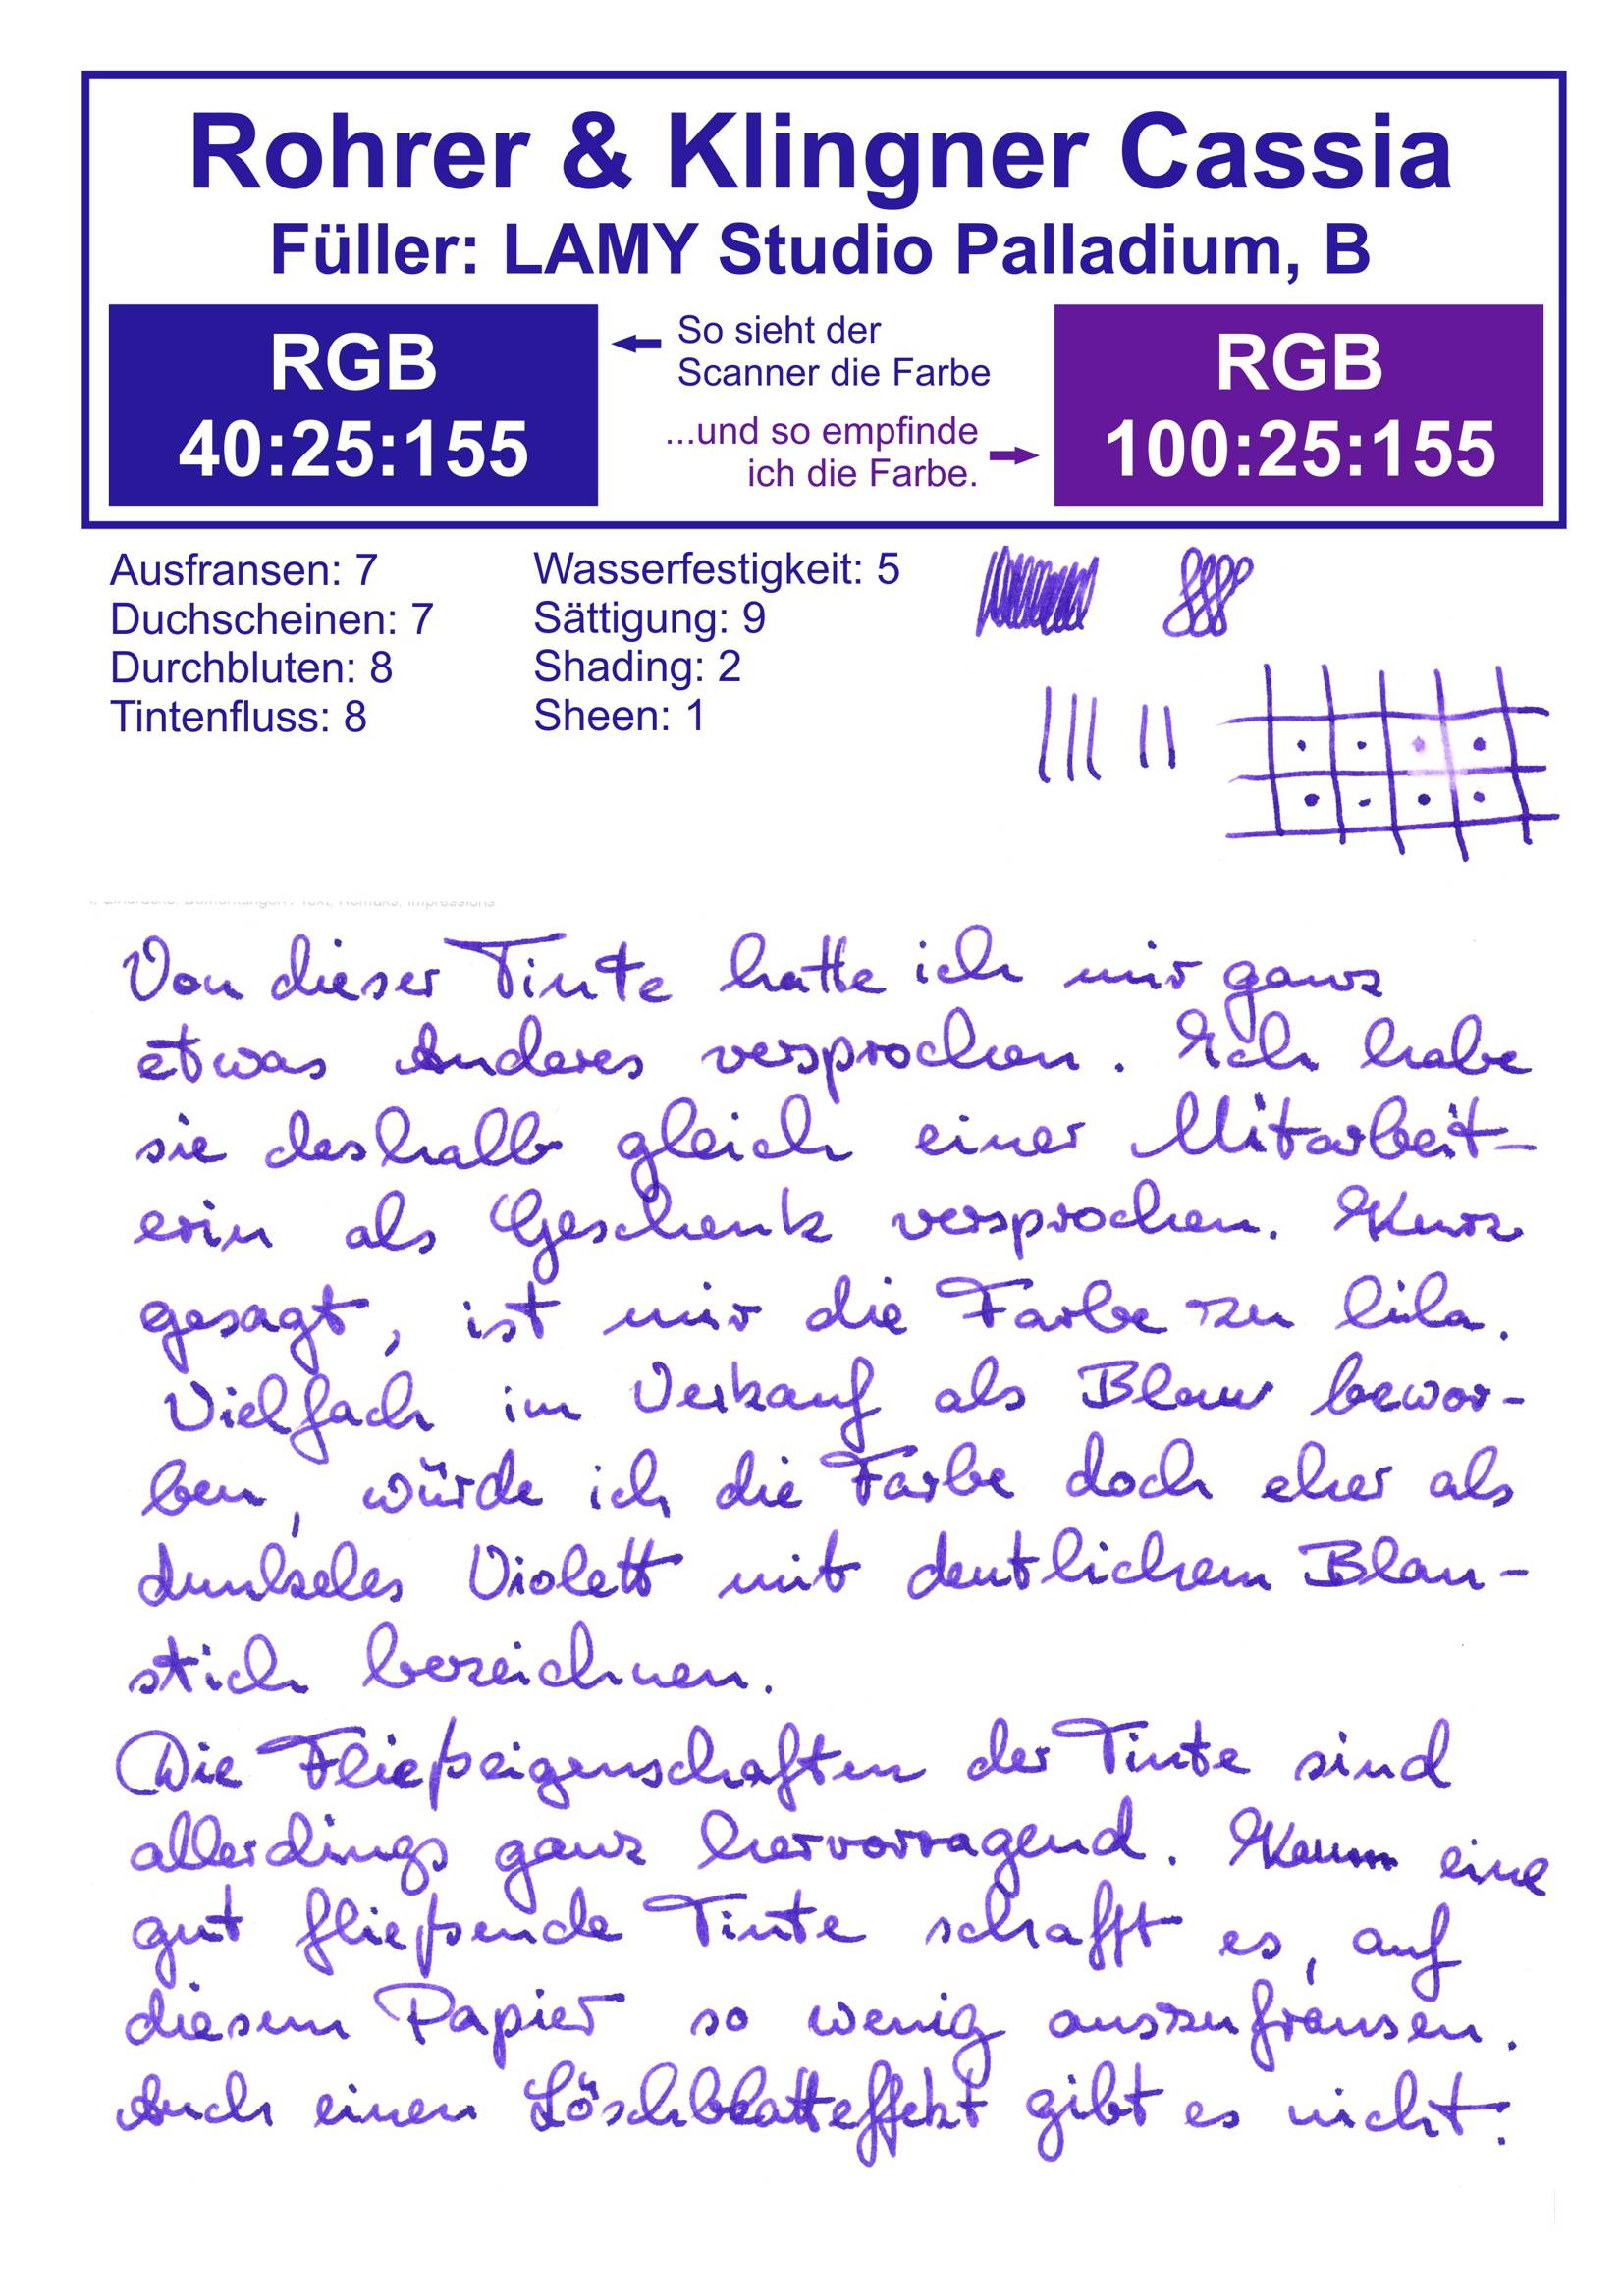 Rohrer & Klingner Cassia
Füller: LAMY Studio Palladium, B
RGB
40:25:155
So sieht der
Scanner die Farbe
...und so empfinde
ich die Farbe.
RGB
100:25:155
Ausfransen: 7
Duchscheinen: 7
Durchbluten: 8
Tintenfluss: 8
Wasserfestigkeit: 5
Sättigung: 9
Shading: 2
Sheen: 1
Von dieser Tinte hatte ich mir ganz
etwas Anderes versprochen. Ich habe
sie deshalb gleich einer Mitarbeit-
erin als Geschenk versprochen. Kurz
gesagt, ist mir die Farbe zu lila.
Vielfach im Verkauf als Blau bewor-
ben, würde ich die Farbe doch eher als
dunkeles Violett mit deutlichem Blau-
stich bezeichnen.
Die Fließeigenschaften der Tinte sind
allerdings ganz hervorragend. Kaum eine
gut fließende Tinte schafft es, auf
diesem Papier so wenig auszufransen.
Auch einen Löschblatteffekt gibt es nicht.